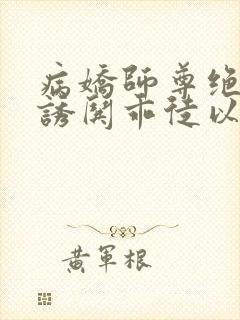 病嬌師尊绝
誘関乖徒以
黄軍根